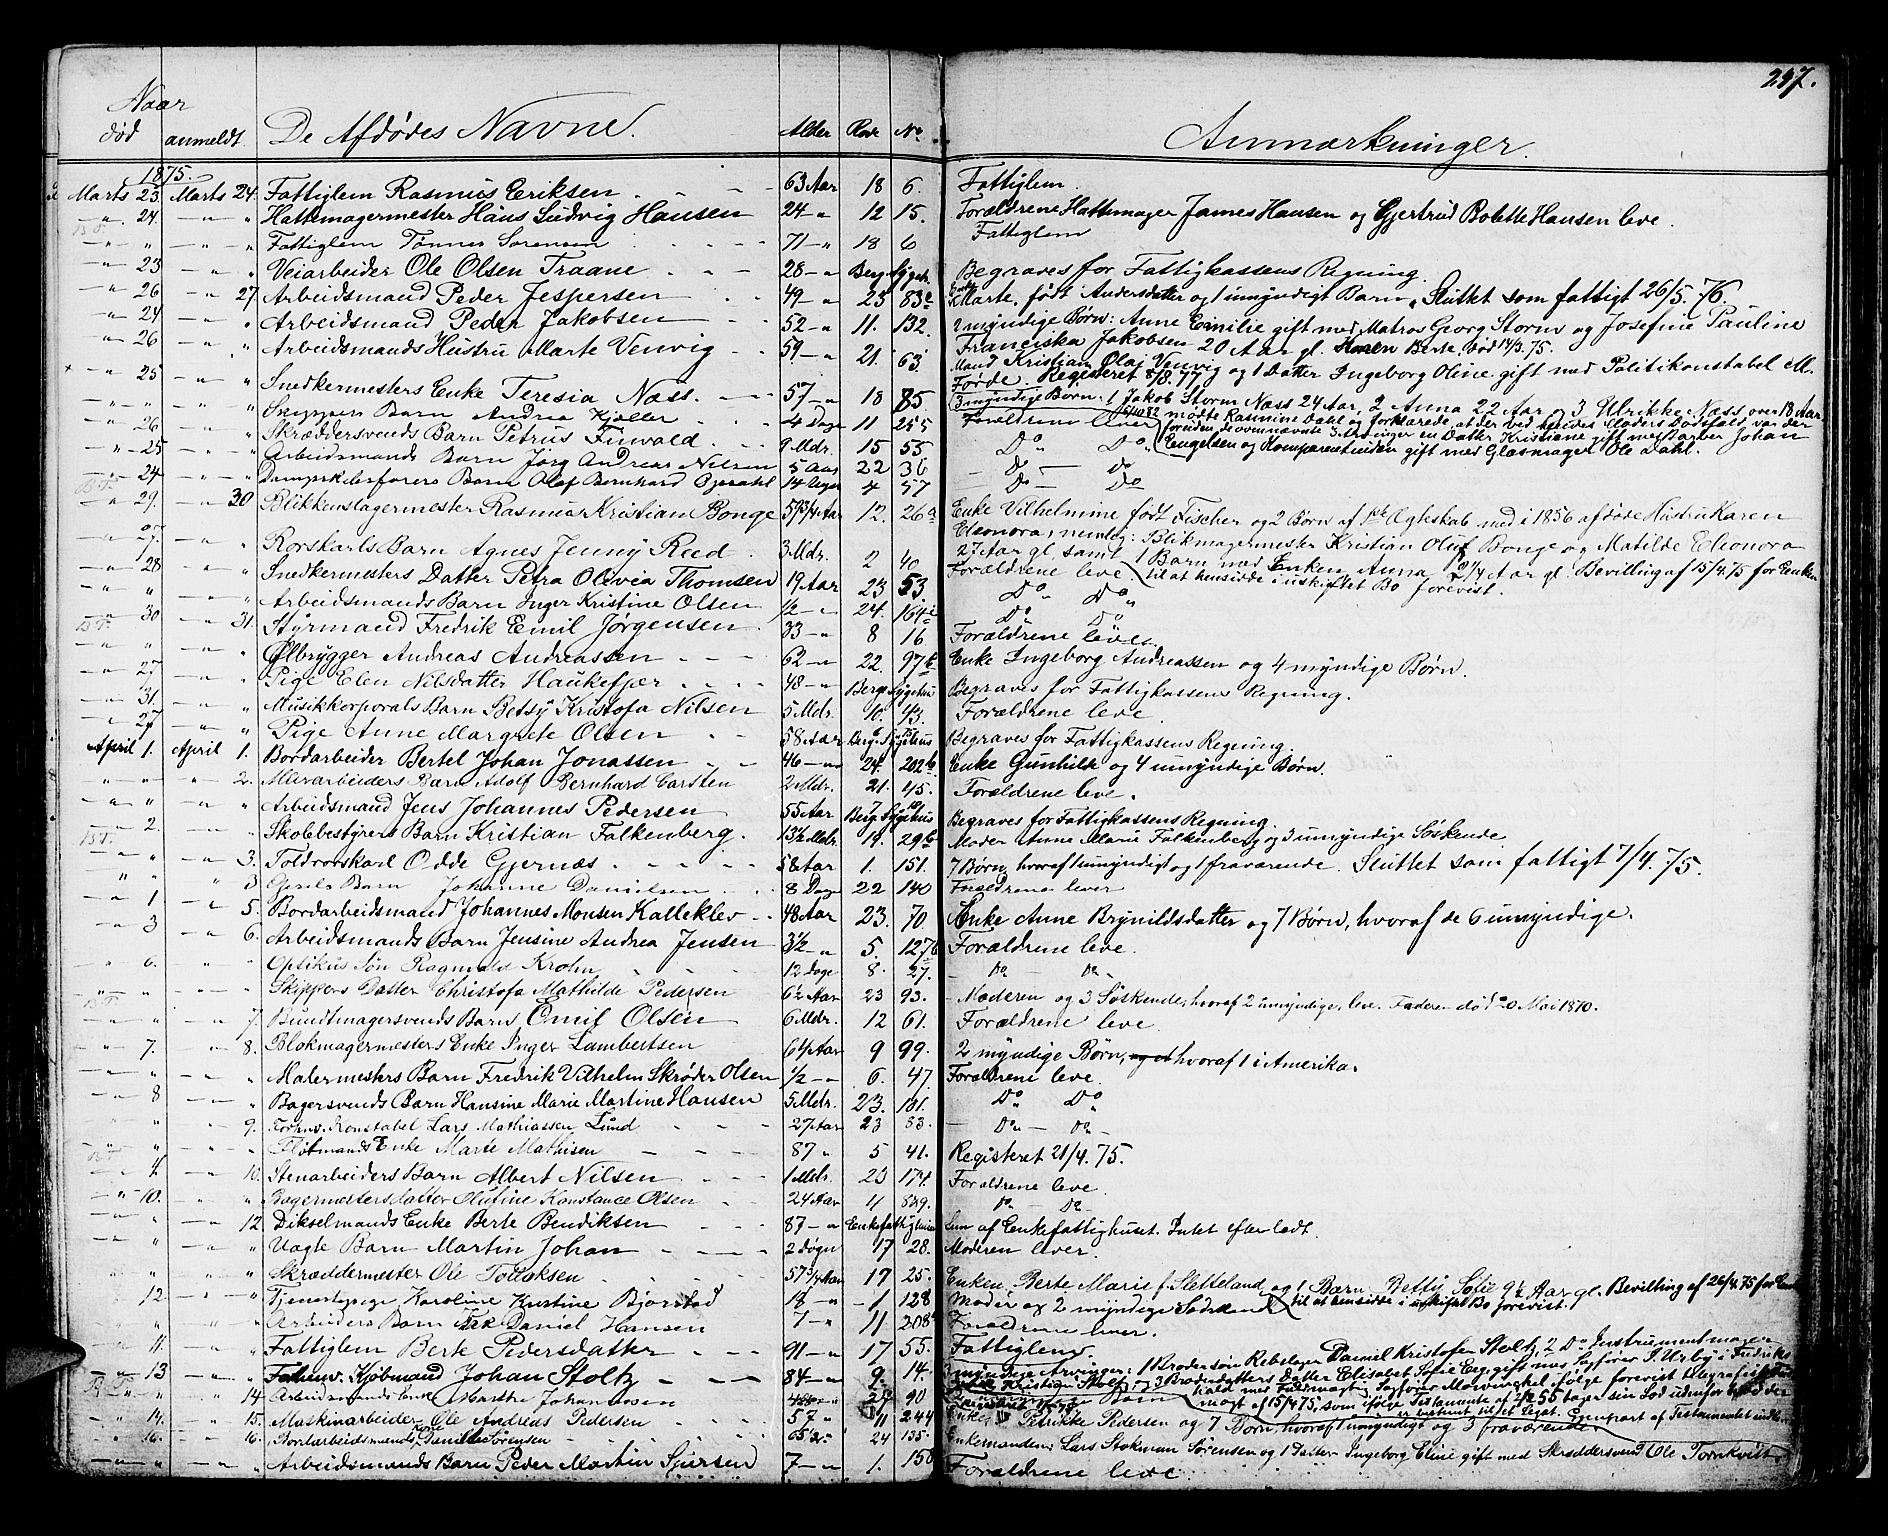 247.
Naar
død anmeldt De Afdødes Navne. Alder Rode No Anmærkninger.
1875.
Marts 23. Marts 24. Fattiglem Rasmus Eriksen 63 Aar 18 6. Fattiglem.
" 24. " " Hattemagermester Hans Ludvig Hansen 24 " 12 15. Forældrene Hattemager James Hansen og Gjertrud Bolette Hansen leve.
" " " " Fattiglem Tønnes Sørensen 71 " 18 6 Fattiglem
" 23 " " Veiarbeider Ole Olsen Traane 28 " Berg. Sygeh. Begraves for Fattigkassens Regning.
" 26 " 27. Arbeidsmand Peder Jespersen 49 " 23 83 Enke Marte, født Andersdatter og 1 umyndigt Barn. Sluttet som fattigt 26/5. 76.
" 24 " " Arbeidsmand Peder Jakobsen 52 " 11. 132. 2 myndige Børn: Anne Emilie gift med Matros Georg Storm og Josefine Pauline
Franciska Jakobsen 20 Aar gl. Karen Berte, død 14/3. 75.
" 26 " " Arbeidsmands Hustru Marte Venvig 59 " 21. 63. Mand Kristian Olai Venvig og 1 Datter Ingeborg Oline gift med Politikonstabel M.
Førde. Registeret 8/8. 77
" 25 " " Snedkermesters Enke Teresia Næss. 57 " 18 85 3 myndige Børn: 1 Jakob Storm Næss 24 Aar, 2 Anna 22 Aar og 3 Ulrikke Næss over 18 Aar.
mødte Rasmine Dahl og forklarede, at der ved hendes Moders Dødsfald var der
foruden de ovennævnte 3 Arvinger en Datter Kristiane gift med Johan
Engelsen og Komparentinden gift med Glasmager Ole Dahl.
" " " " Skippers Barn Andrea Kjeller 4 Dage 11 255 Forældrene lever
" 26 " " Skræddersvends Barn Petrus Finvald 9 Mdr. 15 55 Do Do
" 25 " " Arbeidsmands Barn Jörg Andreas Nilsen 5 Aar 22 36 Do Do
" 24 " " Barn Olaf Bernhard 14 Uger 4 57 Do Do
" 29. " 30 Blikkenslagermester Rasmus Kristian Bonge 59 3/4 Aar 12. 26 a Enke Vilhelmine født Fischer og 2 Børn af 1ste Ægteskab med i 1856 afdøde Hustru Karen
Eleonora, nemlig: Blikmagermester Kristian Oluf Bonge og Matilde Eleonora
27 Aar gl. samt 1 Barn med Enken, Anna 9 1/4 Aar gl. Bevilling af 15/4. 75 for Enken
til at hensidde i uskiftet Bo forevist.
" 27. " " Rorskarls Barn Agnes Jenny Reed 3 Mdr. 2 40 Forældrene leve.
" 28 " " Snedkermesters Datter Petra Olivia Thomsen 19 Aar 23 53. Do Do
" " " " Arbeidsmands Barn Inger Kristine Olsen 1/2 " 24. 164 Do Do
" 30 " 31. Styrmand Fredrik Emil Jørgensen 33 " 8 16 Forældrene leve.
" " " " Ølbrygger Andreas Andreassen 62 " 22. 97 b Enke Ingeborg Andreassen og 4 myndige Børn.
" 27 " " Pige Elen Nilsdatter Haukefjær 48 " Berg. Sygehus Begraves for Fattigkassens Regning.
" 31. " " Musikkorporals Barn Betsy Kristofa Nilsen 5 Mdr. 10. 43. Forældrene leve.
" 27 " " Pige Anne Margrete Olsen 58 Aar Berg. Sygehus Begraves for Fattigkassens Regning.
April 1. April 1. Bordarbeider Bertel Johan Jonassen 46 " 24. 202 b Enke Gunhilde og 4 umyndige Børn.
" " " 2. Murarbeiders Barn Adolf Bernhard Carsten 2 Mdr. 21. 45. Forældrene leve.
" " " " Arbeidsmand Jens Johannes Pedersen 55 Aar Berg. Sygehus Begraves for Fattigkassens Regning.
" 2. " " Skolebestyrers Barn Kristian Falkenberg. 13 1/2 Mdr. 19. 29 b Moder Anne Marie Falkenberg og 3 umyndige Søskende.
" " " 3. Toldrorskarl Odde Gjernæs 58 Aar 1. 151. 7 Børn, hvoraf 1 umyndigt og 1 fraværende. Sluttet som fattigt 7/4. 75.
" " " 3 Barn Johanne Danielsen 8 Dage 22 140 Forældrene lever
" 1 " 5. Bordarbeidsmand Johannes Monsen Kalleklev 48 Aar 23. 70. Enke Anne Brynildsdatter og 7 Børn, hvoraf de 6 umyndige.
" 3 " 6. Arbeidsmands Barn Jensine Andrea Jensen 3 1/2 " 5. 127 b Forældrene leve.
" 6. " " Optikus Søn Ragnvald Krohn 12 Dage 8. 27. Do Do
" " " " Skippers Datter Christofa Mathilde Pedersen 6 1/2 Aar 23 93. Moderen og 3 Søskende, hvoraf 2 umyndige, leve. Faderen død 20 Mai 1870.
" " " 7. Bundtmagersvends Barn Emil Olsen 6 Mdr. 12 61. Forældrene leve.
" 7. " 8. Blokmagermesters Enke Inger Lambertsen 64 Aar 9 99. 2 myndige Børn, hvoraf 1 i Amerika.
" " " " Malermesters Barn Fredrik Vilhelm Skrøder Olsen 1/2 " 6. 47 Forældrene leve.
" 8 " " Bagersvends Barn Hansine Marie Martine Hansen 5 Mdr. 23. 101. Do Do
" " " 9. Konstabel Lars Mathiassen Lund 27 Aar 23 83. Do Do
" " " " Fløtmands Enke Marte Mathisen 87 " 5 41. Registeret 21/4. 75.
" 4 " 10. Stenarbeiders Barn Albert Nilsen 1 Mdr. 23 174. Forældrene leve.
" 10. " " Bagermesters datter Olufine Konstance Olsen 24 Aar 4 Do Do
" " " 12 Dikselmands Enke Berte Bendiksen 87 " Enkefattighuset Lem af Enkefattighuset. Intet efterladt.
" " " " Vagts Barn Martin Johan 2 Døgn 17 28. Moderen lever.
" " " " Skræddermester Ole Tollaksen 57 3/4 Aar 17 25. Enken, Berte Marie f. Sletteland og 1 Barn, Betty Sofie 9 1/2 Aar gl. Bevilling af 26/4. 75 for Enken
til at hensidde i uskiftet Bo forevist.
" 12. " " Tjenestepige Karoline Kristine Bjørstad 18 " 1 128 Moder og 2 myndige Sødskende
" " " " Arbeiders Barn Daniel Hansen 7 " 11 208 Forældrene lever.
" 11. " " Fattiglem Berte Pedersdatter 91 " 17 55. Fattiglem.
" 13 " " Kjøbmand Johan Stoltz 84 " 9. 14. 3 myndige Arvinger: 1 Brodersøn Rebslager Daniel Kristofer Stoltz, 2 Do Instrumentmager
" " " 14 Arbeidsmands Enke Marthe Johannesen 90
" 14. " 15. Maskinarbeider Ole Andreas Pedersen 57 " 11 244 Enke Petrikke Pedersen og 7 Børn, hvoraf 1 umyndigt og 3 fraværende.
" 16. " 16. Bordarbeidsmands Sørensen 24 135. Enkemanden Lars Stokman Sørensen og 1 Datter Ingeborg Eline gift med Skræddersvend Ole Tornkvist
" " " " Arbeidsmands Barn Peder Martin Sjursen 7 " 1. 150 Forældrene leve.